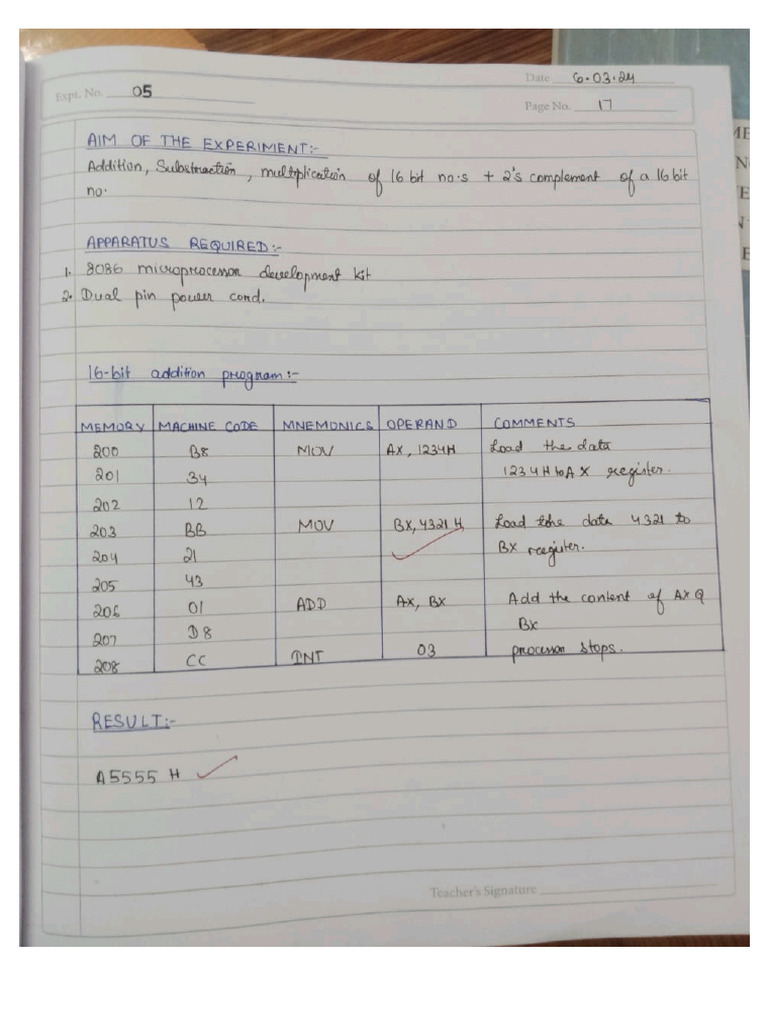 Date 6.03.24
Expt. No. 05
Page No. 17
AIM OF THE EXPERIMENT:-
Addition, Substraction, multiplication of 16 bit no.s + 2's complement of a 16 bit
no.
APPARATUS REQUIRED:-
1. 8086 microprocessor development kit
2. Dual pin power cord.
16-bit addition program:-
MEMORY MACHINE CODE MNEMONICS OPERAND COMMENTS
200 B8 MOV AX, 1234H Load the data
201 34 1234H to AX register.
202 12
203 BB MOV BX, 4321 H, Load the data 4321 to
204 21 BX register.
205 43
206 01 ADD AX, BX Add the content of AX &
207 D8 BX
208 CC INT 03 processor stops.
RESULT:-
A5555 H
Teacher's Signature